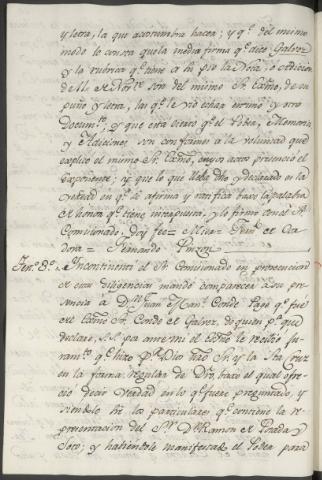 y letra, la que acostumbra hacer; y qe. del mismo
modo le consta que la media firma qe. dice Galvez
y la rubrica qe. tiene a su pie la Nota, o Adicion
de M. son del mismo Sr. Exmo., de su
puño y letra, las qe. le vio echar en uno y otro
Documto.; y que está cierto qe. el Poder, Memoria
y Adicion, son conformes a la voluntad que
explicó el mismo Sr. Exmo., cuyos actos presenció el
Exponente; y que lo que lleva dho y declarado es la
verdad en qe. se afirma y ratifica bajo la palabra
de honor qe. tiene interpuesta, y lo firmó con el Sr.
Comisionado, doy fee = Mier = Franco. de Cor
dova = Fernando Pinzon
Testo. 8o. Incontinenti el Sr. Comisionado en prosecucion
de estas diligencias mandó comparecer a su pre
sencia á Dn. Juan Conde qe. fué
del Exmo. Sr. Conde de Galvez, de quien pa. que
declare, S. Sa. por ante mi el Esno. le recibió ju
ramto. qe. hizo pr. Dios Nro Sr. y la Sta. Cruz
en la forma regular de Dro, baxo el qual ofre
ció decir verdad en lo qe. fuere preguntado, y
siendole los particulares qe. contiene la re
presentacion del Sr. Dn. Ramon de Posada y
Soto; y habiendole manifestado el Poder para